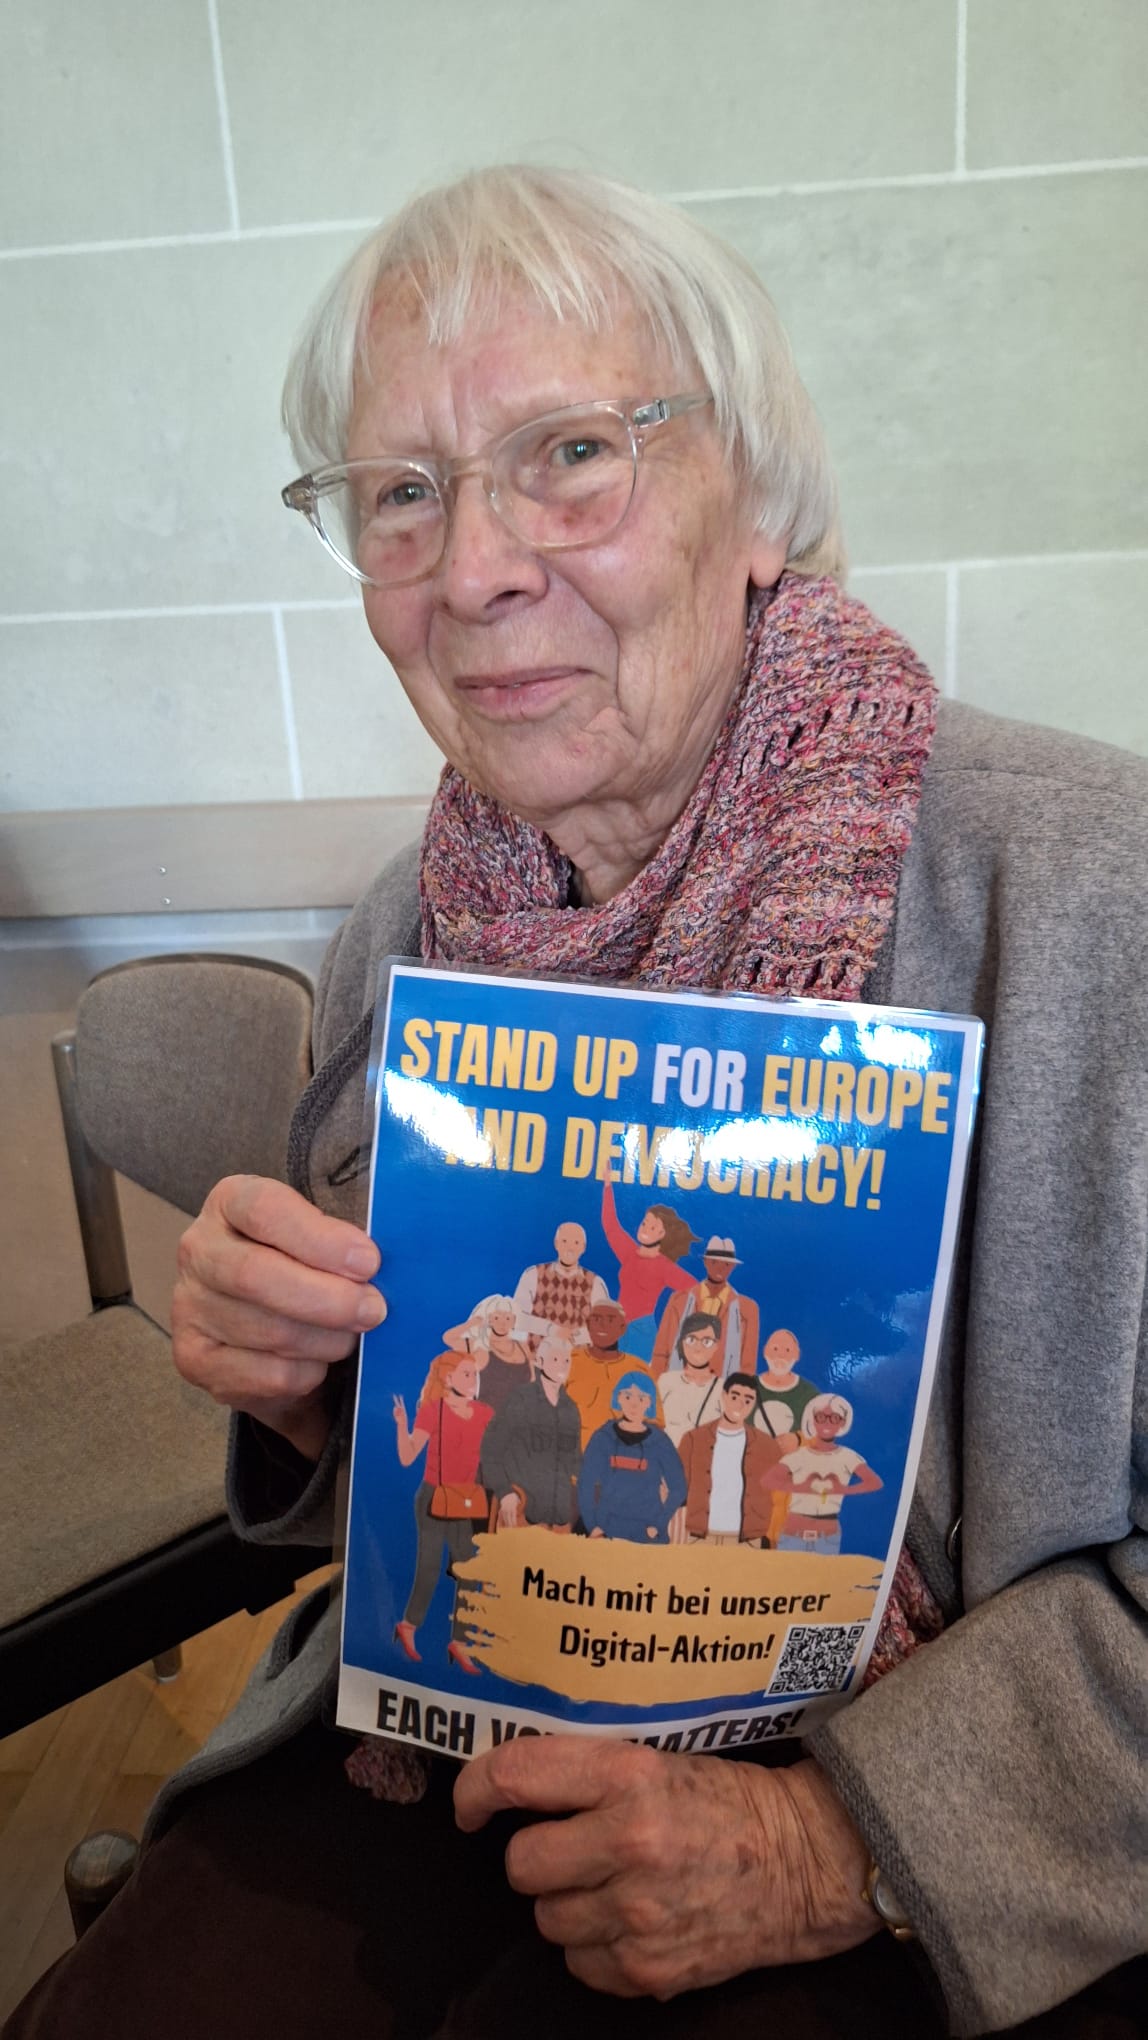 STAND UP FOR EUROPE
AND DEMOCRACY!
Mach mit bei unserer
Digital-Aktion!
EACH MATTERS!